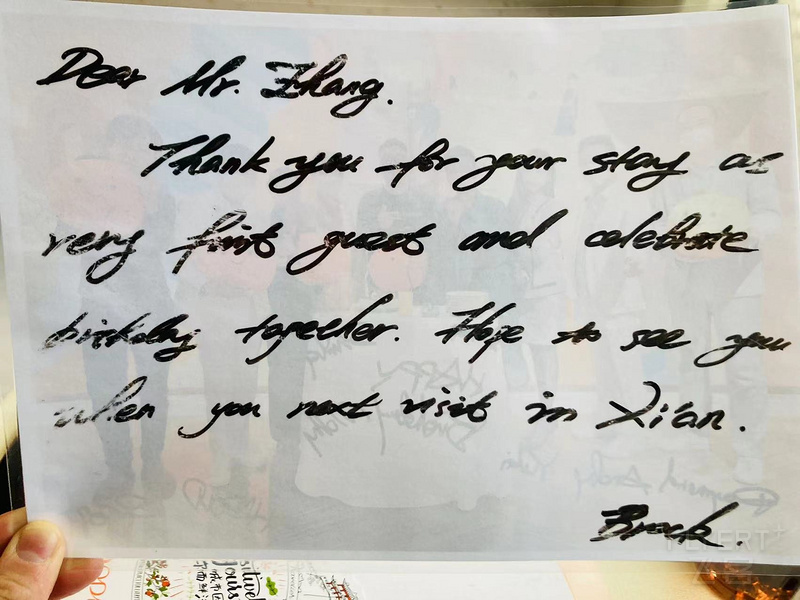 Dear Mr. Zhang.
Thank you for your stay as
very first guest and celebrate
birthday together. Hope to see you
when you next visit in Xi'an.
Brock.